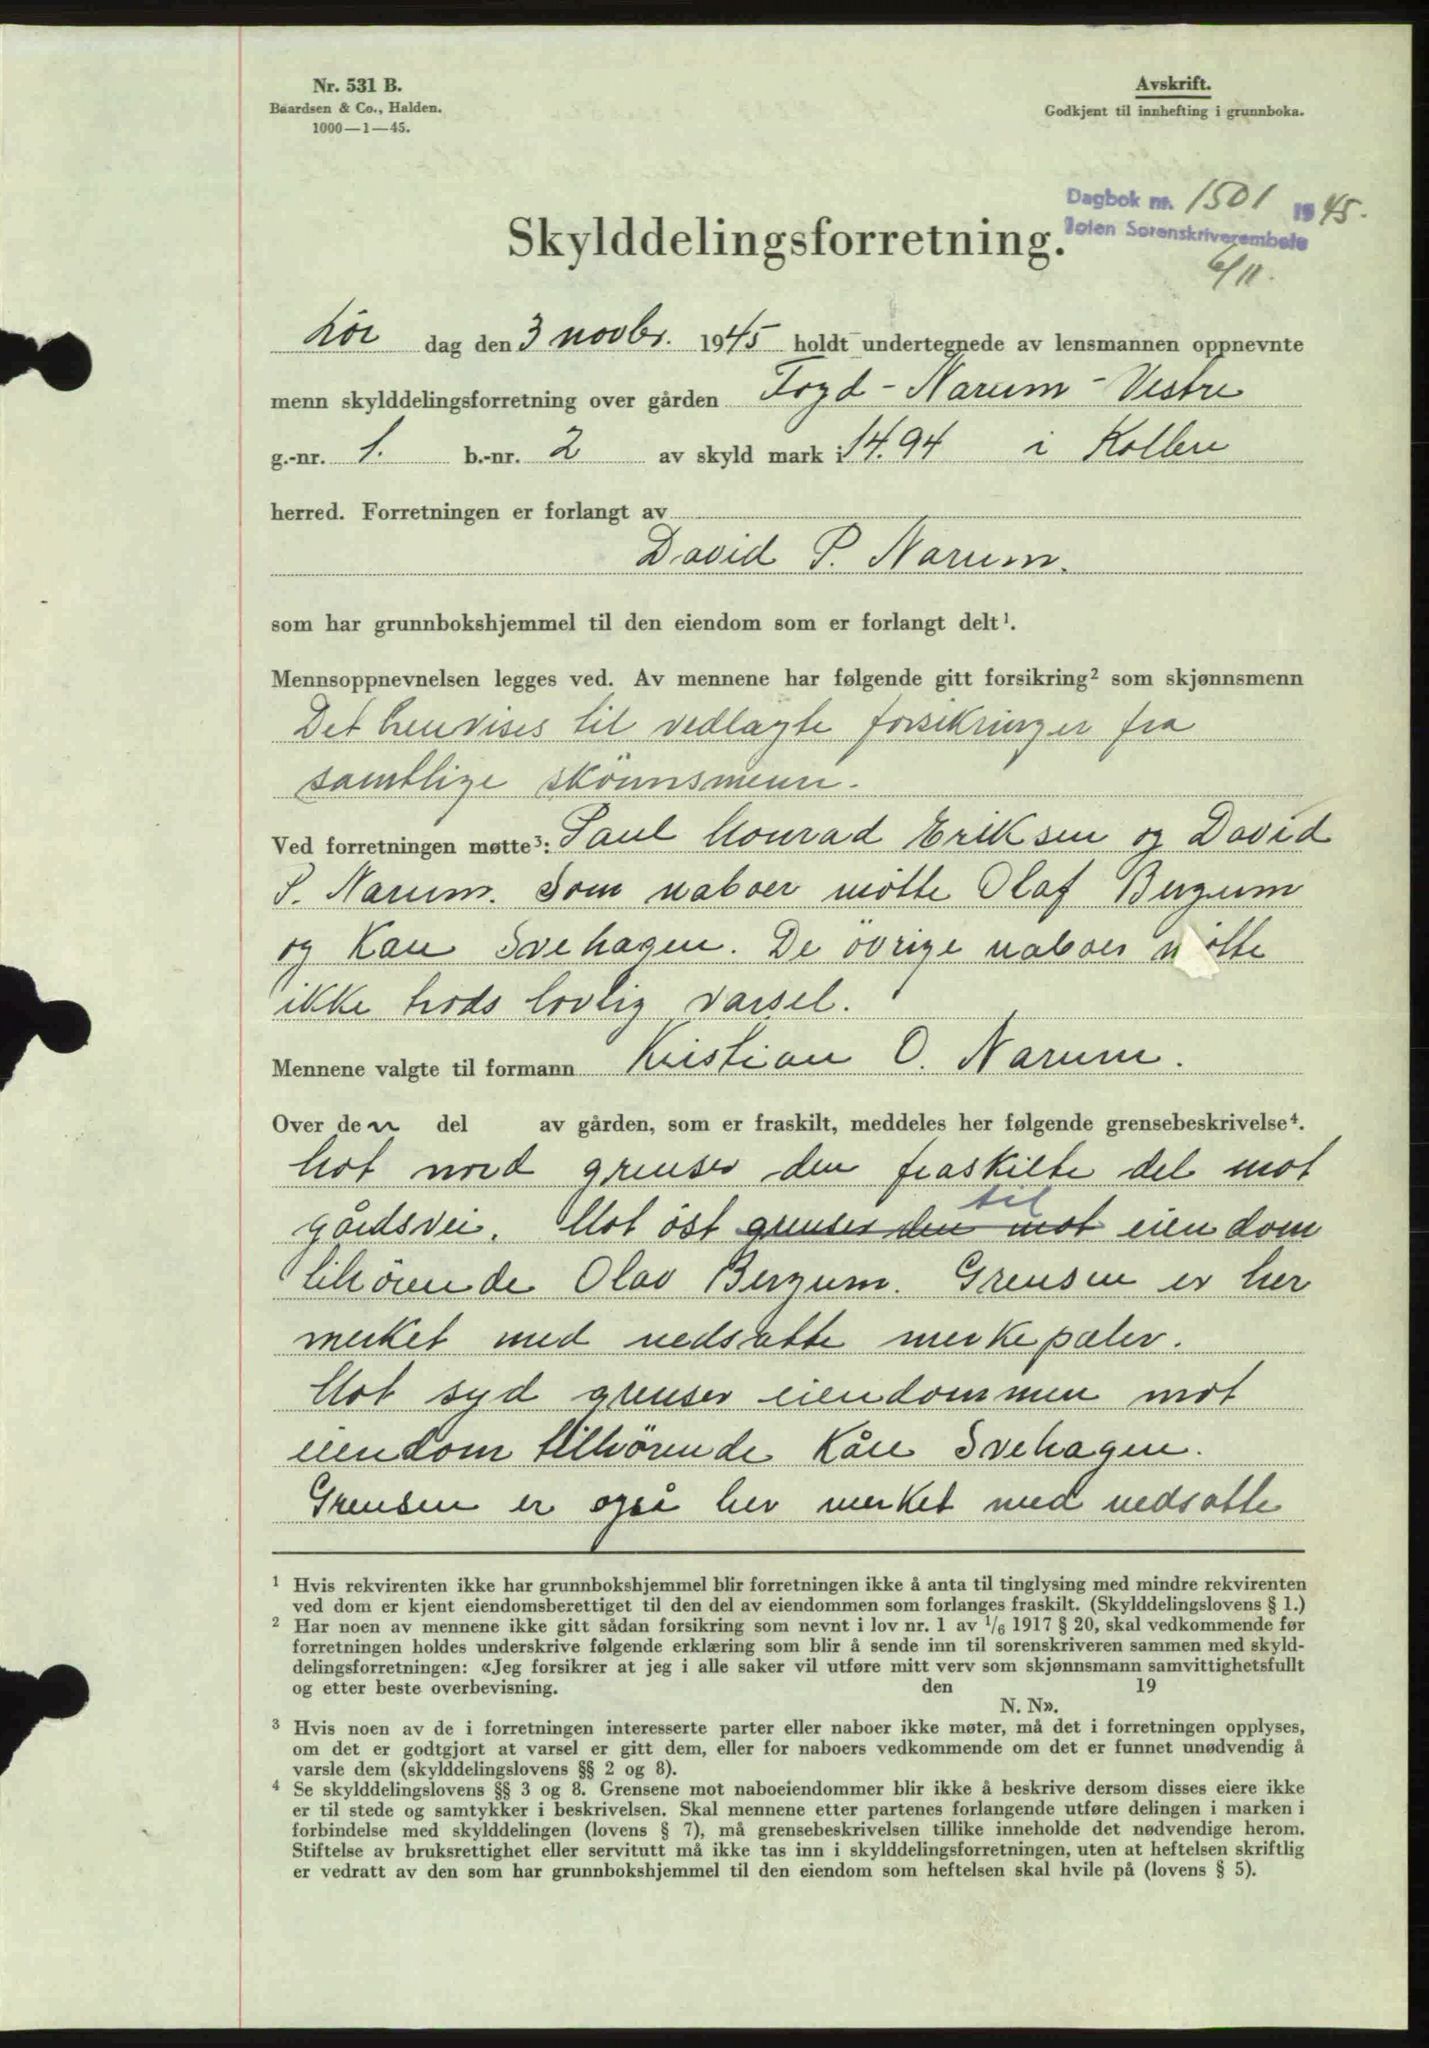 Nr. 531 B.
Baardsen & Co., Halden.
1000—1—45.
Avskrift.
Godkjent til innhefting i grunnboka.
Dagbok nr. 1501 1945.
Toten Sorenskriverembete
6/11.
Skylddelingsforretning.
Lör dag den 3 novbr. 1945 holdt undertegnede av lensmannen oppnevnte
menn skylddelingsforretning over gården Fogd - Narum - Vestre
g.-nr. 1. b.-nr. 2 av skyld mark i 14.94 i Kolbu
herred. Forretningen er forlangt av
David P. Narum.
som har grunnbokshjemmel til den eiendom som er forlangt delt¹.
Mennsoppnevnelsen legges ved. Av mennene har følgende gitt forsikring² som skjønnsmenn
Det henvises til vedlagte forsikringer fra
samtlige skönnsmenn.
Ved forretningen møtte³: Paul Monrad Eriksen og David
P. Narum. Som naboer mötte Olaf Bergum
og Kåre Svehagen. De övrige naboer mötte
ikke trods lovlig varsel.
Mennene valgte til formann Kristian O. Narum.
Over den del av gården, som er fraskilt, meddeles her følgende grensebeskrivelse⁴.
Mot nord grenser den fraskilte del mot
gårdsvei. Mot öst grenser den mot til eiendom
tilhörende Olav Bergum. Grensen er her
merket med nedsatte merkepæler.
Mot syd grenser eiendommen mot
eiendom tilhörende Kåre Svehagen.
Grensen er også her merket med nedsatte
¹ Hvis rekvirenten ikke har grunnbokshjemmel blir forretningen ikke å anta til tinglysing med mindre rekvirenten
ved dom er kjent eiendomsberettiget til den del av eiendommen som forlanges fraskilt. (Skylddelingslovens § 1.)
² Har noen av mennene ikke gitt sådan forsikring som nevnt i lov nr. 1 av 1/6 1917 § 20, skal vedkommende før
forretningen holdes underskrive følgende erklæring som blir å sende inn til sorenskriveren sammen med skyld-
delingsforretningen: «Jeg forsikrer at jeg i alle saker vil utføre mitt verv som skjønnsmann samvittighetsfullt
og etter beste overbevisning. den 19
N. N».
³ Hvis noen av de i forretningen interesserte parter eller naboer ikke møter, må det i forretningen opplyses,
om det er godtgjort at varsel er gitt dem, eller for naboers vedkommende om det er funnet unødvendig å
varsle dem (skylddelingslovens §§ 2 og 8).
⁴ Se skylddelingslovens §§ 3 og 8. Grensene mot naboeiendommer blir ikke å beskrive dersom disses eiere ikke
er til stede og samtykker i beskrivelsen. Skal mennene etter partenes forlangende utføre delingen i marken i
forbindelse med skylddelingen (lovens § 7), må grensebeskrivelsen tillike inneholde det nødvendige herom.
Stiftelse av bruksrettighet eller servitutt må ikke tas inn i skylddelingsforretningen, uten at heftelsen skriftlig
er vedratt av den som har grunnbokshjemmel til den eiendom som heftelsen skal hvile på (lovens § 5).